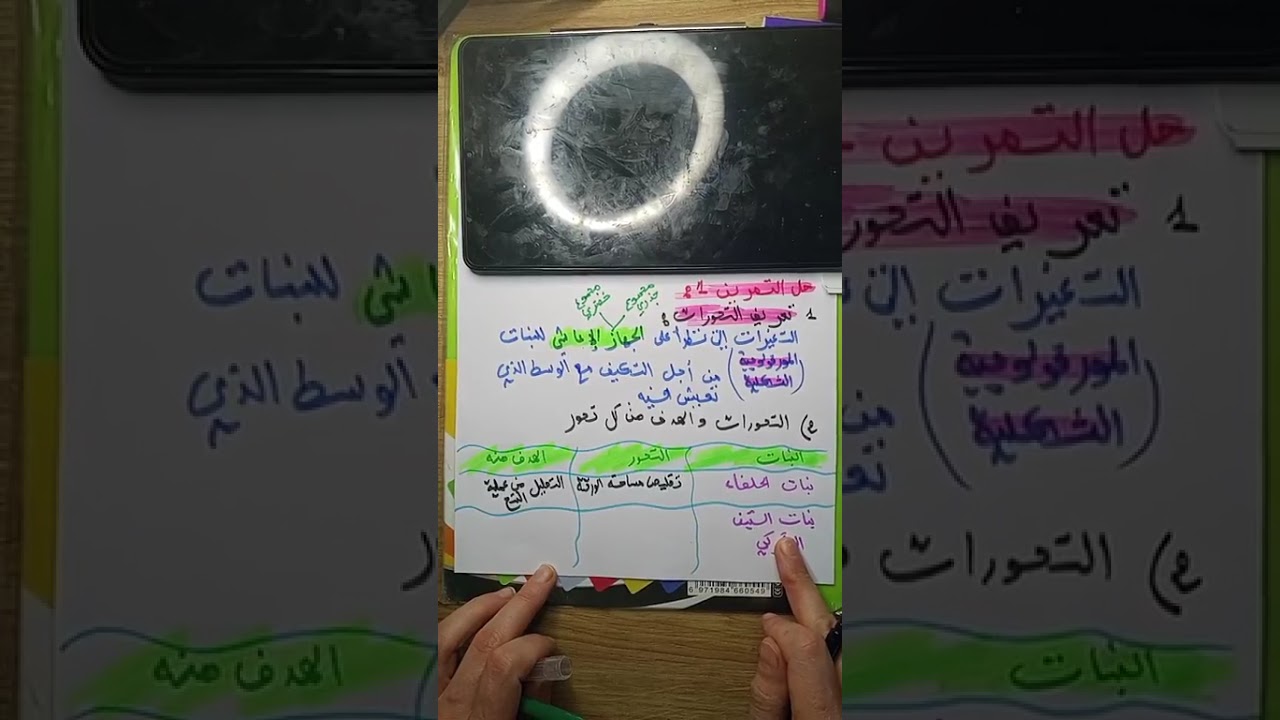 حل التمرين 1:
مجموع خضري
مجموع جذري
1 تعريف التحورات:
التغيرات التي تطرأ على الجهاز الإعاشي للنبات
(المورفولوجية الشكلية) من أجل التكيف مع الوسط الذي
تعيش فيه
2) التحورات و الهدف من كل تحور
النبات
التحور
الهدف منه
نبات الحلفاء
تقليص مساحة الورقة
التقليل من عملية النتح
نبات التين الشوكي
6 971984 660549